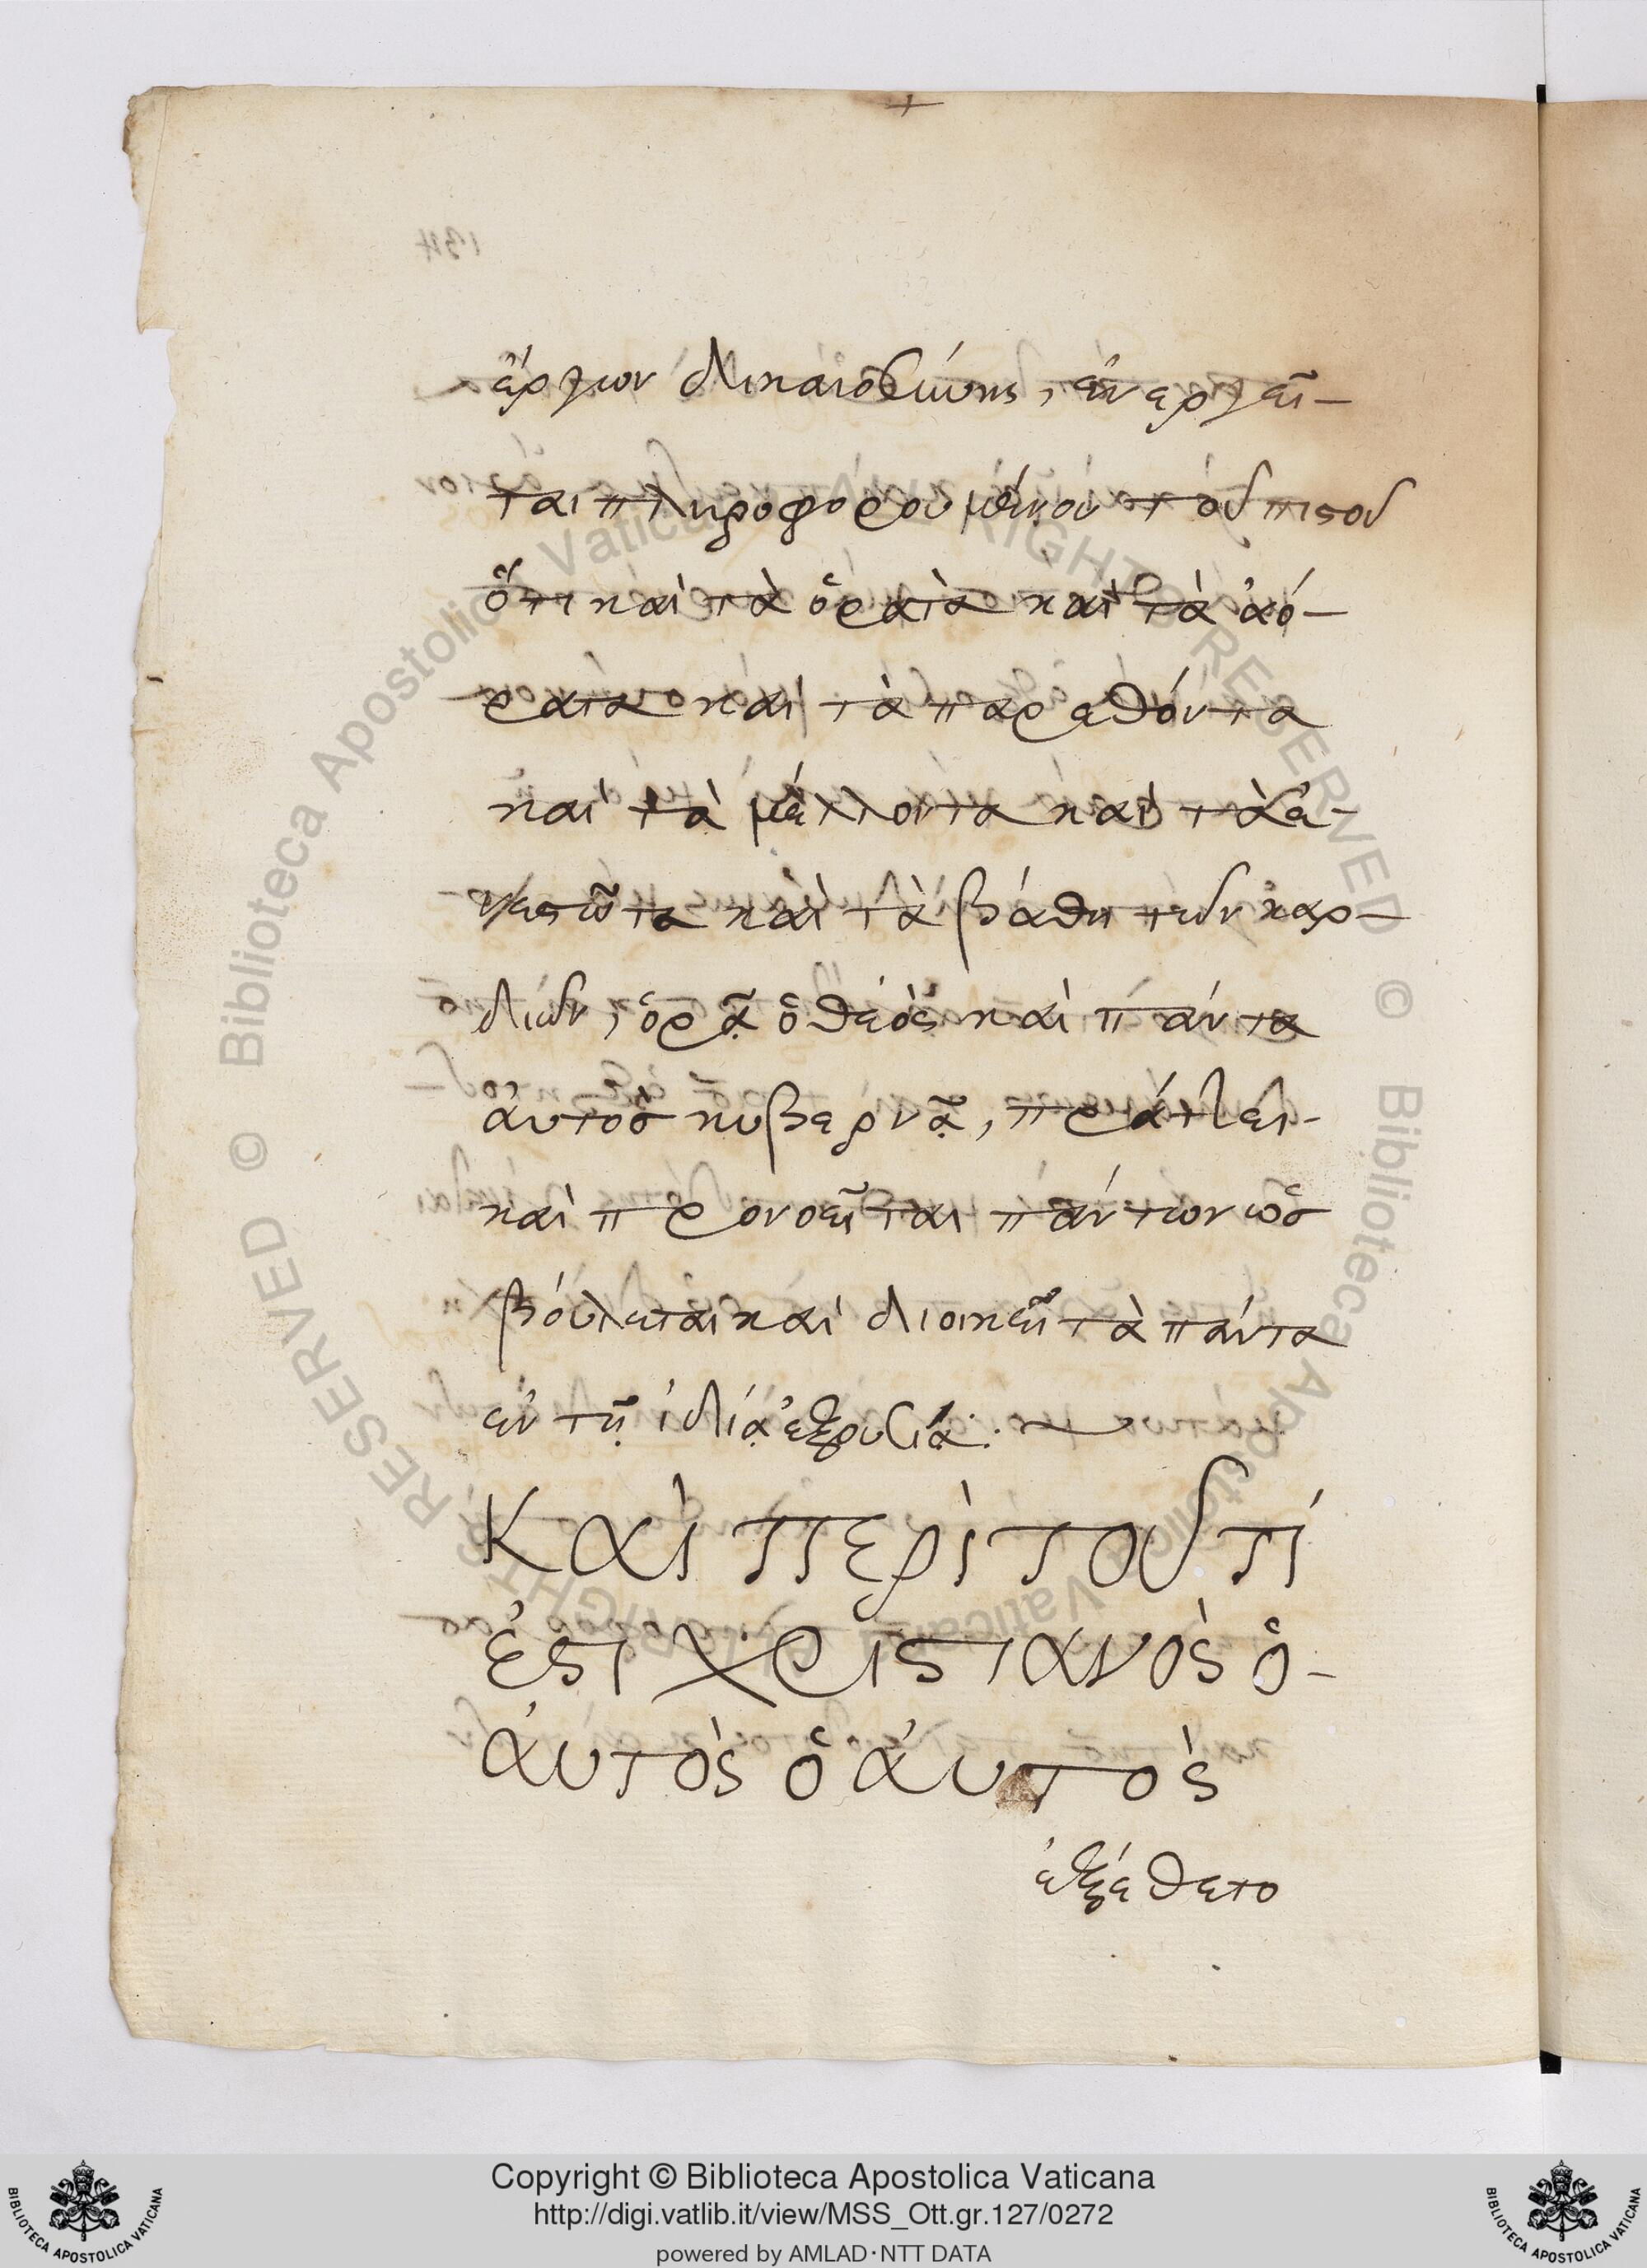 ἔργων δικαιοσύνης, ἐνεργεῖ-
ται πληροφορουμένου τοῦ πιστοῦ
ὅτι καὶ τὰ ὁρατὰ καὶ τὰ ἀό-
ρατα καὶ τὰ παρεθόντα
καὶ τὰ μέλλοντα καὶ τὰ ἐ-
νεστῶτα καὶ τὰ βάθη τῶν καρ-
διῶν, ὁρᾷ ὁ θεὸς καὶ πάντα
ἀυτὸς κυβερνᾷ, πράττει-
καὶ προνοεῖται πάντων ὡς
βόυλεται καὶ διοικεῖ τὰ πάντα
ἐν τῇ ἰδίᾳ ἐξουσίᾳ:
Καὶ περὶ τοῦ τί
ἐστι χριστιανὸς ὁ-
ἀυτὸς ὁ ἀυτὸς
ἐξέθετο
134
Copyright © Biblioteca Apostolica Vaticana
http://digi.vatlib.it/view/MSS_Ott.gr.127/0272
powered by AMLAD·NTT DATA
BIBLIOTECA APOSTOLICA VATICANA
BIBLIOTECA APOSTOLICA VATICANA
© Biblioteca Apostolica Vaticana ALL RIGHTS RESERVED
© Biblioteca Apostolica Vaticana ALL RIGHTS RESERVED